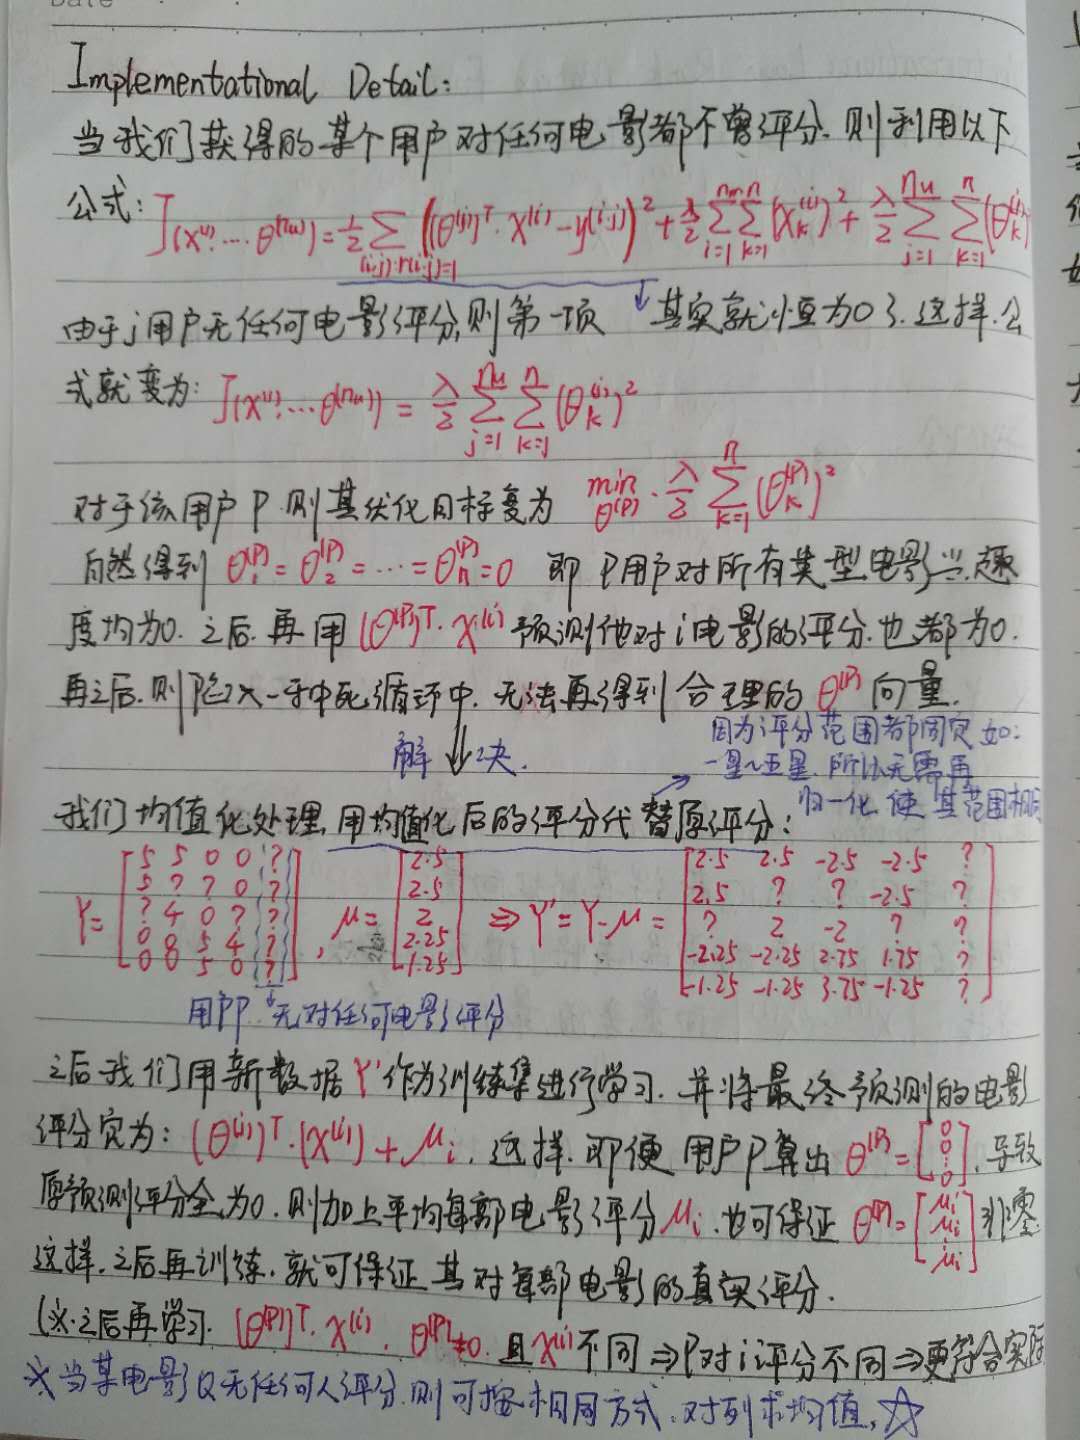 Implementational Detail:
当我们获得的某个用户对任何电影都不曾评分.则利用以下
公式: J(x⁽¹⁾...θ⁽ⁿᵘ⁾) = 1/2 Σ_{(i,j):r(i,j)=1} ((θ^(j))^T·x^(i) - y^(i,j))² + λ/2 Σ_{i=1}^{nm} Σ_{k=1}^{n} (x_k^(i))² + λ/2 Σ_{j=1}^{nu} Σ_{k=1}^{n} (θ_k^(j)
由于j用户无任何电影评分,则第一项 ↓ 其实就恒为0了.这样.公
式就变为: J(x⁽¹⁾...θ⁽ⁿᵘ⁾) = λ/2 Σ_{j=1}^{nu} Σ_{k=1}^{n} (θ_k^(j))²
对于该用户P.则其优化目标变为 min_{θ^(P)} · λ/2 Σ_{k=1}^{n} (θ_k^(P))²
自然得到 θ_1^(P) = θ_2^(P) = ... = θ_n^(P) = 0 即P用户对所有类型电影兴趣
度均为0. 之后.再用 (θ^(P))^T·x^(i) 预测他对i电影的评分.也都为0.
再之后.则陷入一种死循环中.无法再得到合理的 θ^(P) 向量.
解 ⇓ 决.
因为评分范围都固定如:
一星~五星.所以无需再
归一化 使其范围相同
我们均值化处理,用均值化后的评分代替原评分:
Y= [5 5 0 0 ?
5 ? ? 0 ?
? 4 0 ? ?
0 0 5 4 ?
0 0 5 0 ?], μ= [2.5
2.5
2
2.25
1.25] ⇒ Y'=Y-μ= [2.5 2.5 -2.5 -2.5 ?
2.5 ? ? -2.5 ?
? 2 -2 ? ?
-2.25 -2.25 2.75 1.75 ?
-1.25 -1.25 3.75 -1.25 ?]
用户P.无对任何电影评分
之后我们用新数据Y'作为训练集进行学习.并将最终预测的电影
评分定为: (θ^(j))^T·(x^(i)) + μ_i. 这样.即便用户P算出 θ^(P) = [0 0 ⋮ 0]. 导致
原预测评分全为0.则加上平均每部电影评分μ_i.也可保证 θ^(P) = [μ_i μ_i ⋮ μ_i] 非零.
这样.之后再训练.就可保证其对每部电影的真实评分.
(※之后再学习. (θ^(P))^T·x^(i). θ^(P)≠0. 且x^(i)不同⇒P对i评分不同⇒更符合实际
※当某电影Q无任何人评分.则可按相同方式.对列求均值.☆